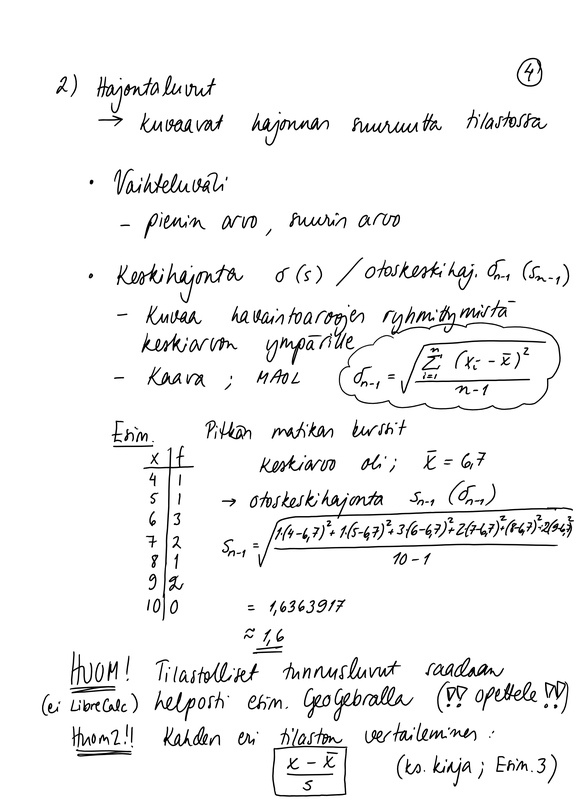 4
2) Hajontaluvut
→ kuvaavat hajonnan suuruutta tilastossa
• Vaihteluväli
- pienin arvo, suurin arvo
• Keskihajonta σ(s) / otoskeskihaj. σn-1 (sn-1)
- Kuvaa havaintoarvojen ryhmittymistä
keskiarvon ympärille
- Kaava ; MAOL σn-1 = √(Σ i=1 n (xi - x̄)² / n-1)
Esim. Pitkän matikan kurssit
x f
keskiarvo oli ; x̄ = 6,7
4 1
5 1
→ otoskeskihajonta sn-1 (σn-1)
6 3
7 2
8 1
9 2
10 0
sn-1 = √(1·(4-6,7)² + 1·(5-6,7)² + 3(6-6,7)² + 2(7-6,7)² + (8-6,7)² + 2(9-6,7)² / 10-1)
= 1,6363917
≈ 1,6
HUOM! Tilastolliset tunnusluvut saadaan
(ei LibreCalc) helposti esim. GeoGebralla (!! opettele !!)
Huom2!! Kahden eri tilaston vertaileminen :
x - x̄ / s (ks. kirja ; Esim. 3)